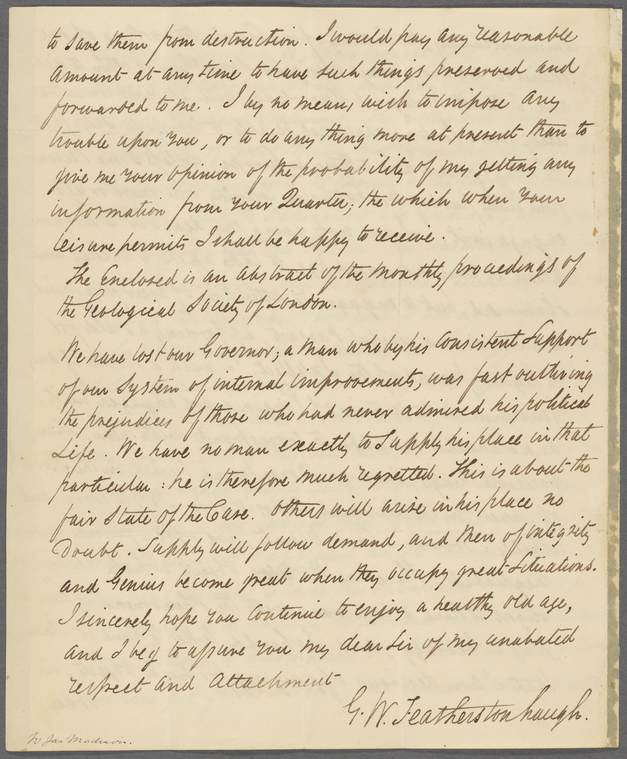 to save them from destruction. I would pay any reasonable
amount at any time to have such things preserved and
forwarded to me. I by no means wish to impose any
trouble upon you, or to do any thing more at present than to
give me your opinion of the probability of my getting any
information from your Quarter; the which when your
leisure permits I shall be happy to receive.
The Enclosed is an Abstract of the monthly proceedings of
the Geological Society of London.
We have lost our Governor; a man who by his consistent Support
of our System of internal improvements, was fast outliving
the prejudices of those who had never admired his political
Life. We have no man exactly to Supply his place in that
particular: he is therefore much regretted. This is about the
fair State of the Case. Others will arise in his place no
Doubt. Supply will follow demand, and Men of integrity
and Genius become great when they occupy great Situations.
I sincerely hope you continue to enjoy a healthy old age,
and I beg to assure you my dear Sir of my unabated
respect and Attachment
G. W. Featherstonhaugh.
Jas Madison.